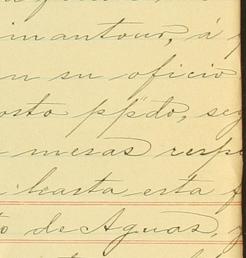 inantour, á
n su oficio
osto ppdo, seg
mesas resp
hasta esta f
o de Aguas, y